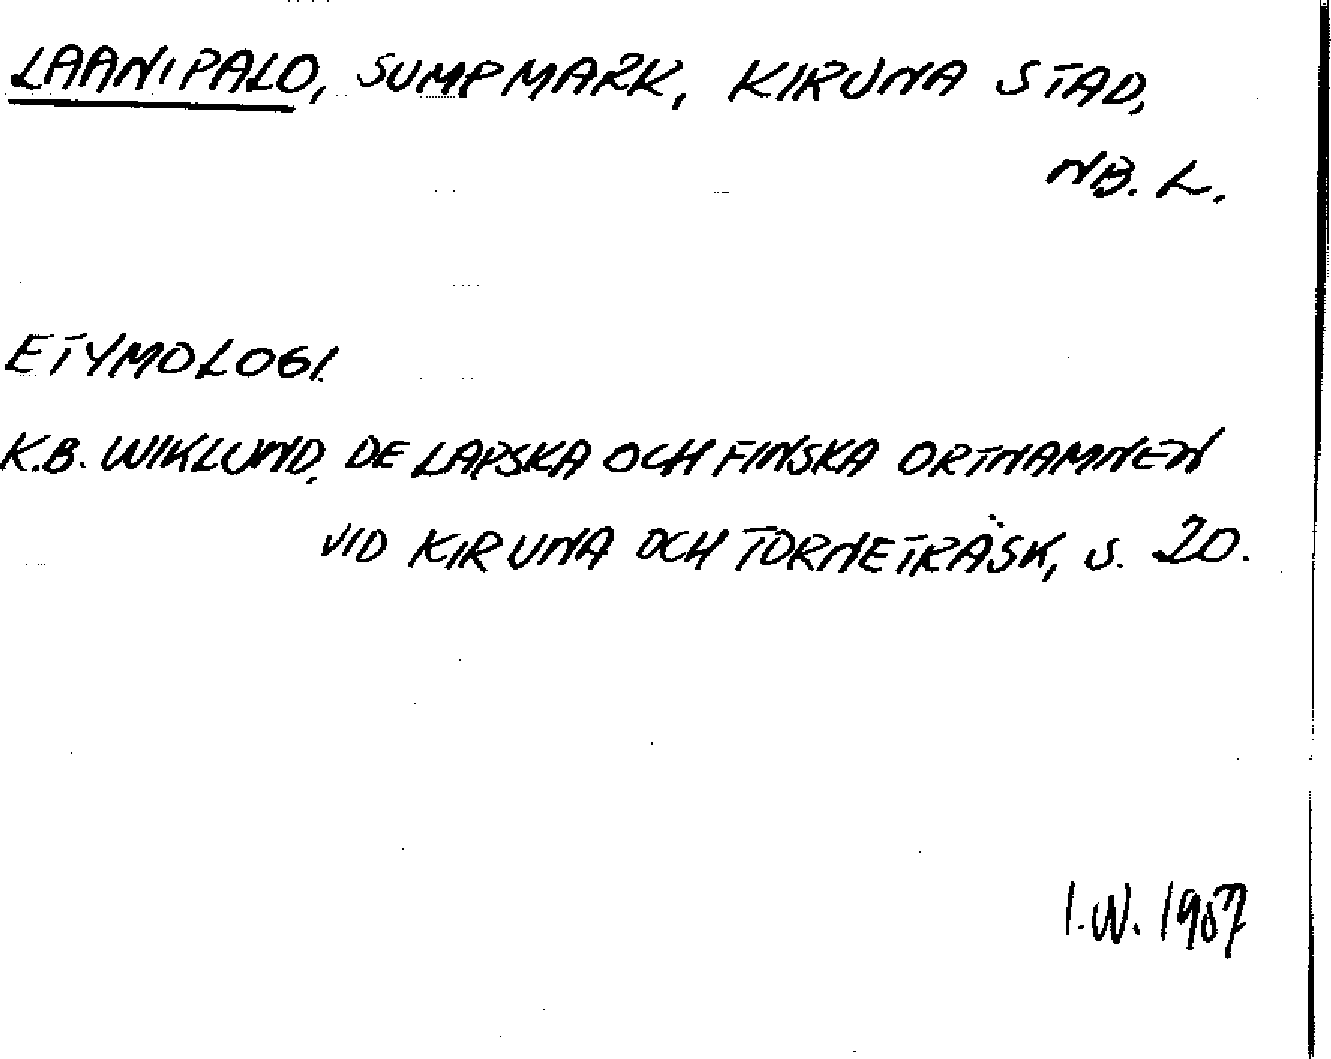 LAANIPALO, SUMPMARK, KIRUNA STAD,
NB. L.
ETYMOLOGI.
K.B. WIKLUND, DE LAPSKA OCH FINSKA ORTNAMNEN
VID KIRUNA OCH TORNETRÄSK, S. 20.
I.W. 1987